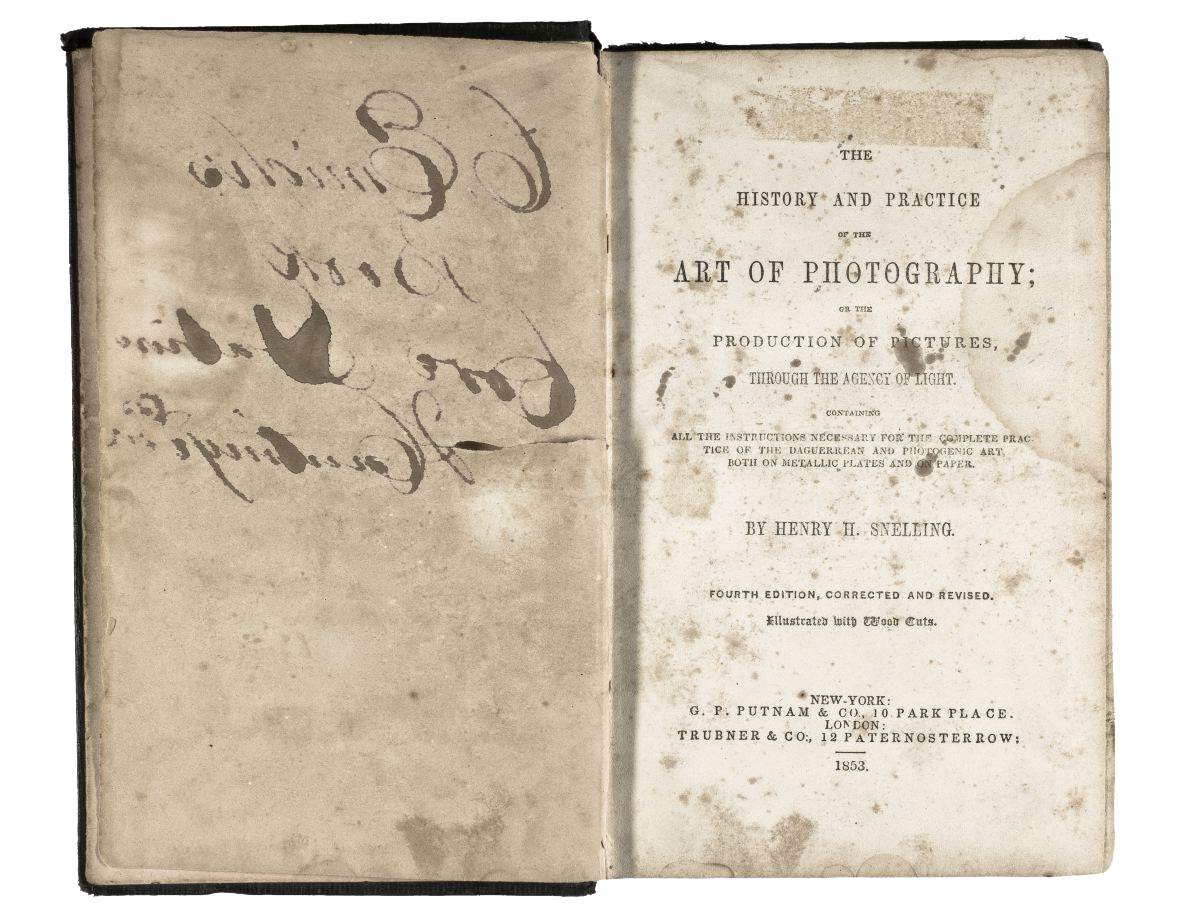 Book
THE
HISTORY AND PRACTICE
OF THE
ART OF PHOTOGRAPHY;
OR THE
PRODUCTION OF PICTURES,
THROUGH THE AGENCY OF LIGHT.
CONTAINING
ALL THE INSTRUCTIONS NECESSARY FOR THE COMPLETE PRAC-
TICE OF THE DAGUERREAN AND PHOTOGENIC ART,
BOTH ON METALLIC PLATES AND ON PAPER.
BY HENRY H. SNELLING.
FOURTH EDITION, CORRECTED AND REVISED.
Illustrated with Wood Cuts.
NEW-YORK:
G. P. PUTNAM & CO., 10 PARK PLACE.
LONDON:
TRUBNER & CO., 12 PATERNOSTERROW;
1853.